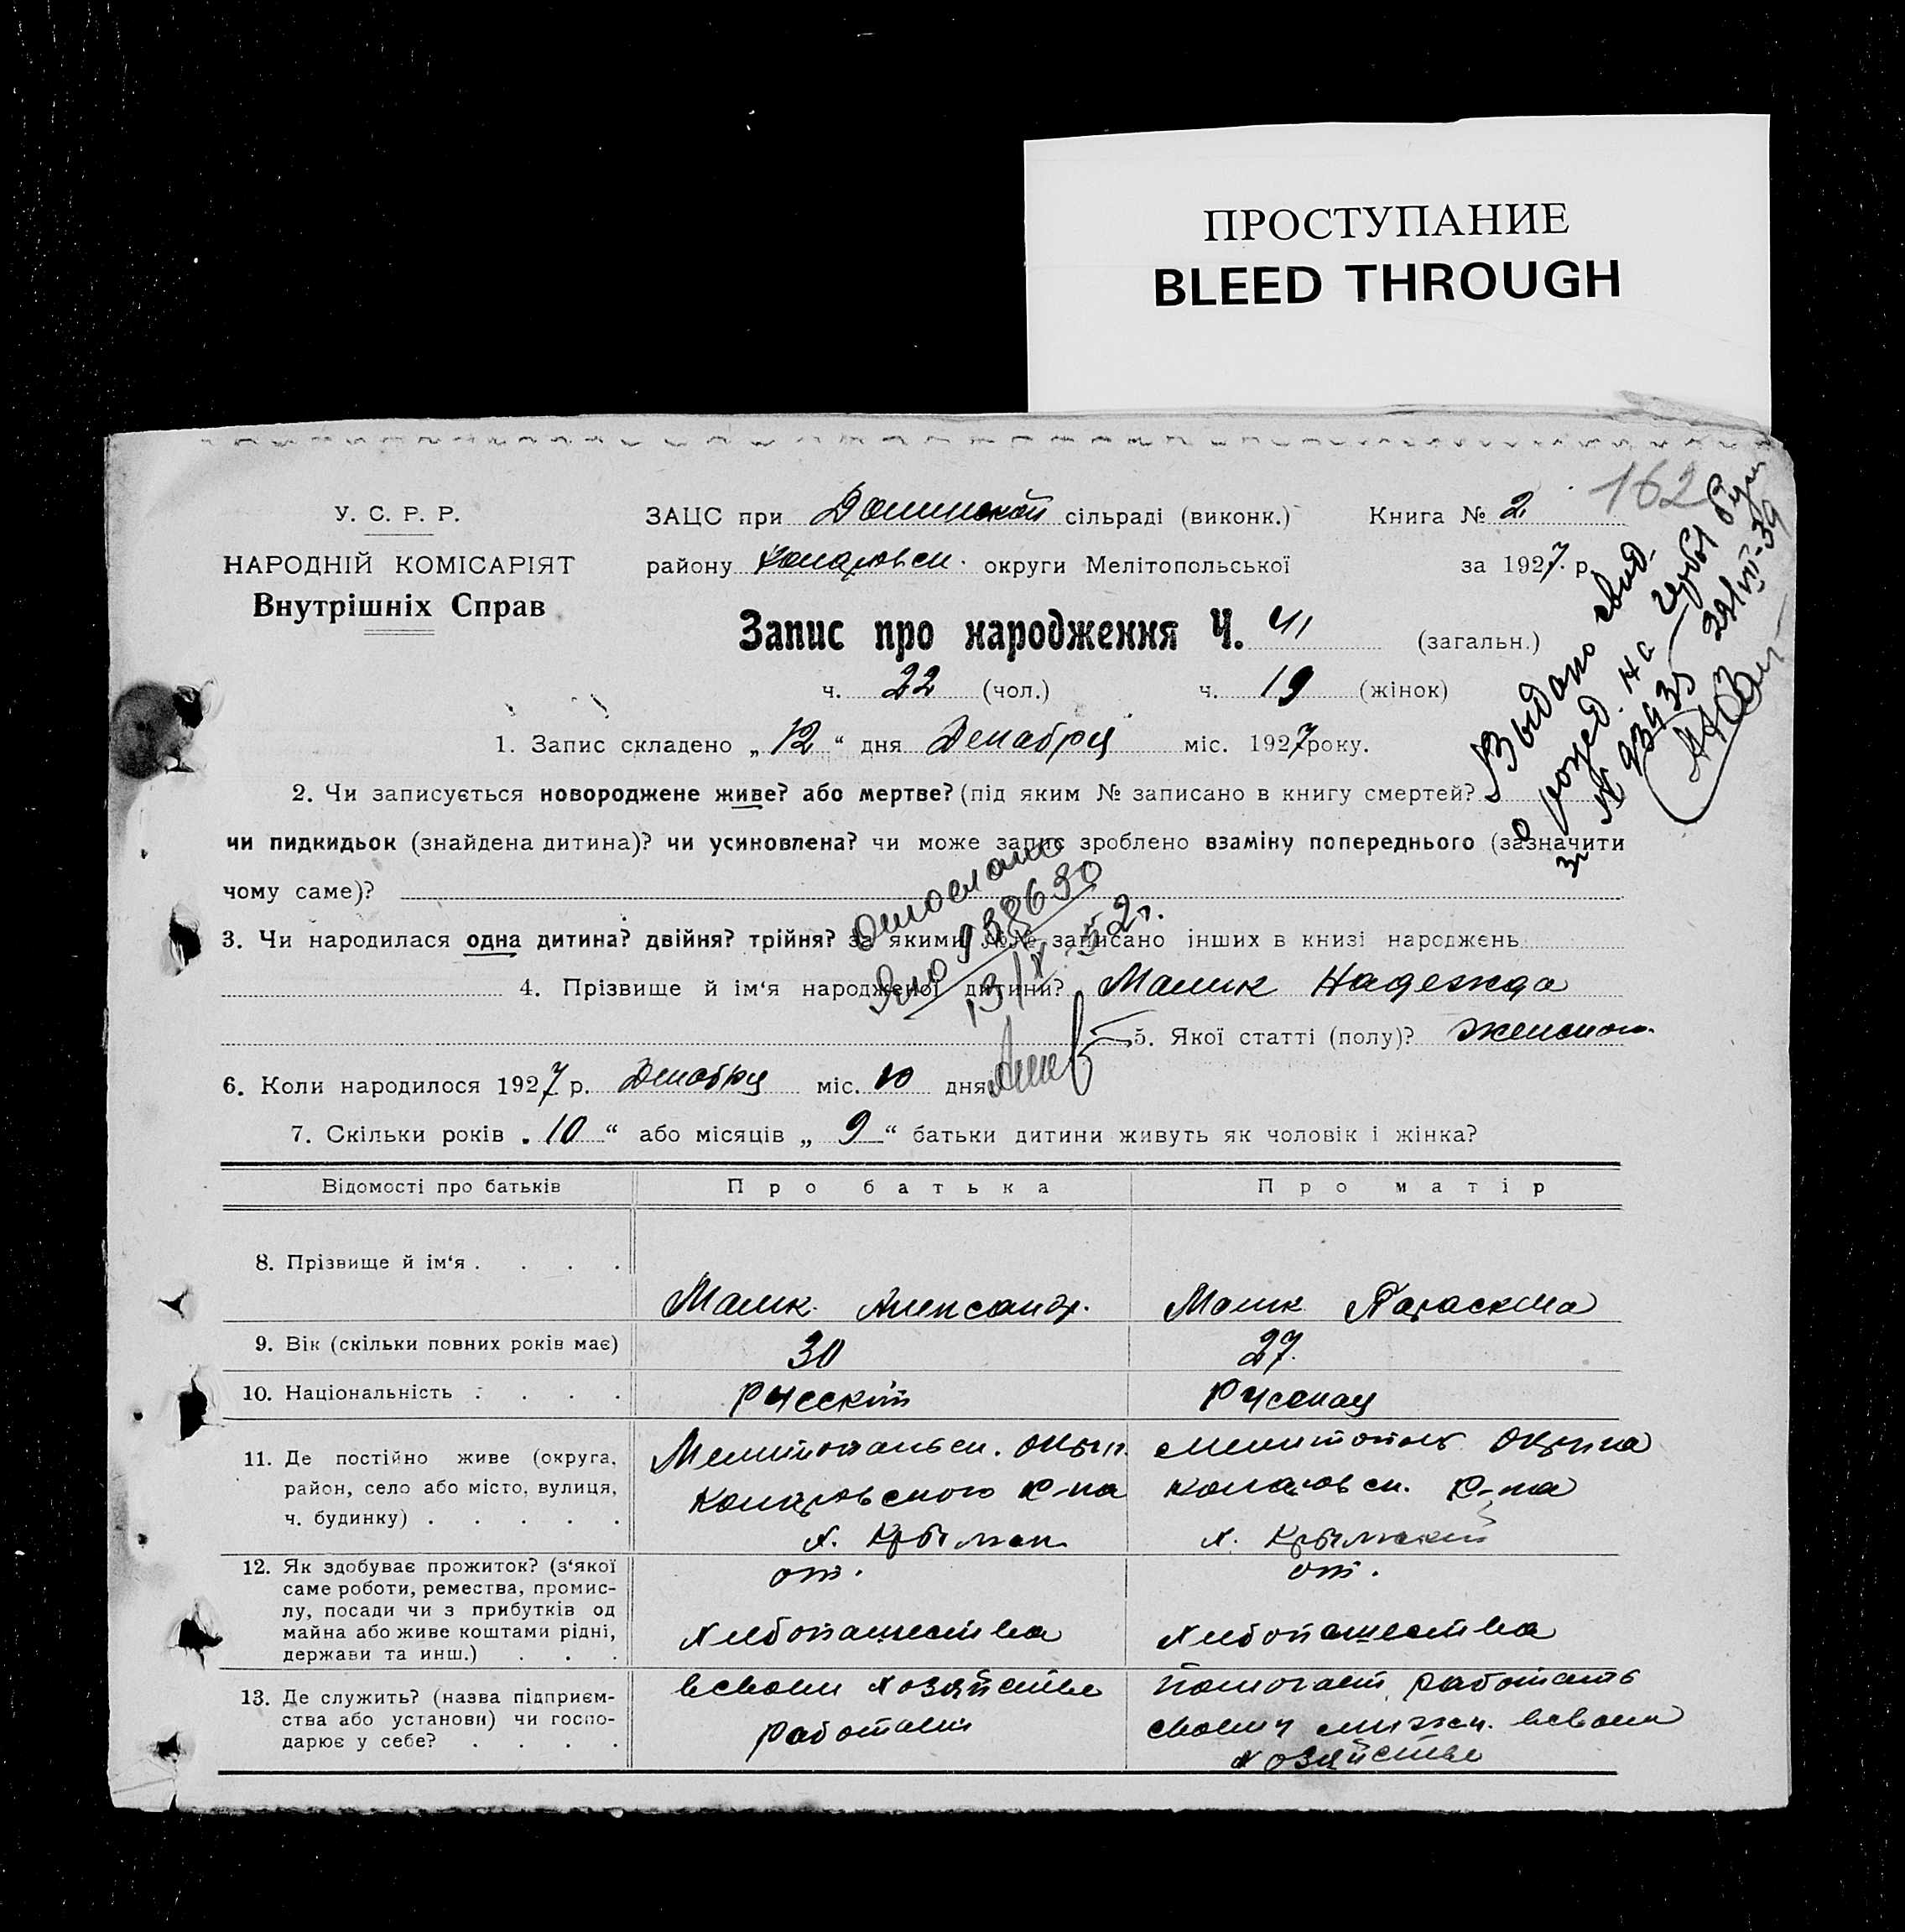 ПРОСТУПАНИЕ
BLEED THROUGH
162
У. С. Р. Р.
НАРОДНІЙ КОМІСАРІЯТ
Внутрішніх Справ
ЗАЦС при Долинской сільраді (виконк.) Книга № 2
району округи Мелітопольської за 1927 р.
Запис про народження Ч. 41 (загальн.)
ч. 22 (чол.) ч. 19 (жінок)
1. Запис складено „12“ дня Декабря міс. 1927 року.
Выдано свид.
о рожд. на
2. Чи записується новороджене живе? або мертве? (під яким № записано в книгу смертей?
чи пидкидьок (знайдена дитина)? чи усиновлена? чи може запис зроблено взаміну попереднього (зазначити
чому саме)?
3. Чи народилася одна дитина? двійня? трійня? за якими №№ записано інших в книзі народжень
4. Прізвище й ім‘я народженої дитини? Малик Надежда
5. Якої статті (полу)? женского
6. Коли народилося 1927 р. Декабря міс. 10 дня
7. Скільки років „10“ або місяців „9“ батьки дитини живуть як чоловік і жінка?
Відомості про батьків Про батька Про матір
8. Прізвище й ім‘я . . . . Малик Александр. Малик Параскева
9. Вік (скільки повних років має) 30 27.
10. Національність . . . . Русский Русская
11. Де постійно живе (округа, Мелитопольск. окр. Мелитополь округа
район, село або місто, вулиця, р-на р-на
ч. будинку) . . . . . х. Крымск. х. Крымский
12. Як здобуває прожиток? (з‘якої от. от.
саме роботи, ремества, промис-
лу, посади чи з прибутків од
майна або живе коштами рідні, хлебопашества хлебопашества
держави та инш.) . . .
13. Де служить? (назва підприєм- в своем хозяйстве помогает работать
ства або установи) чи госпо- работает своему мужу. в своем
дарює у себе? . . . . хозяйстве